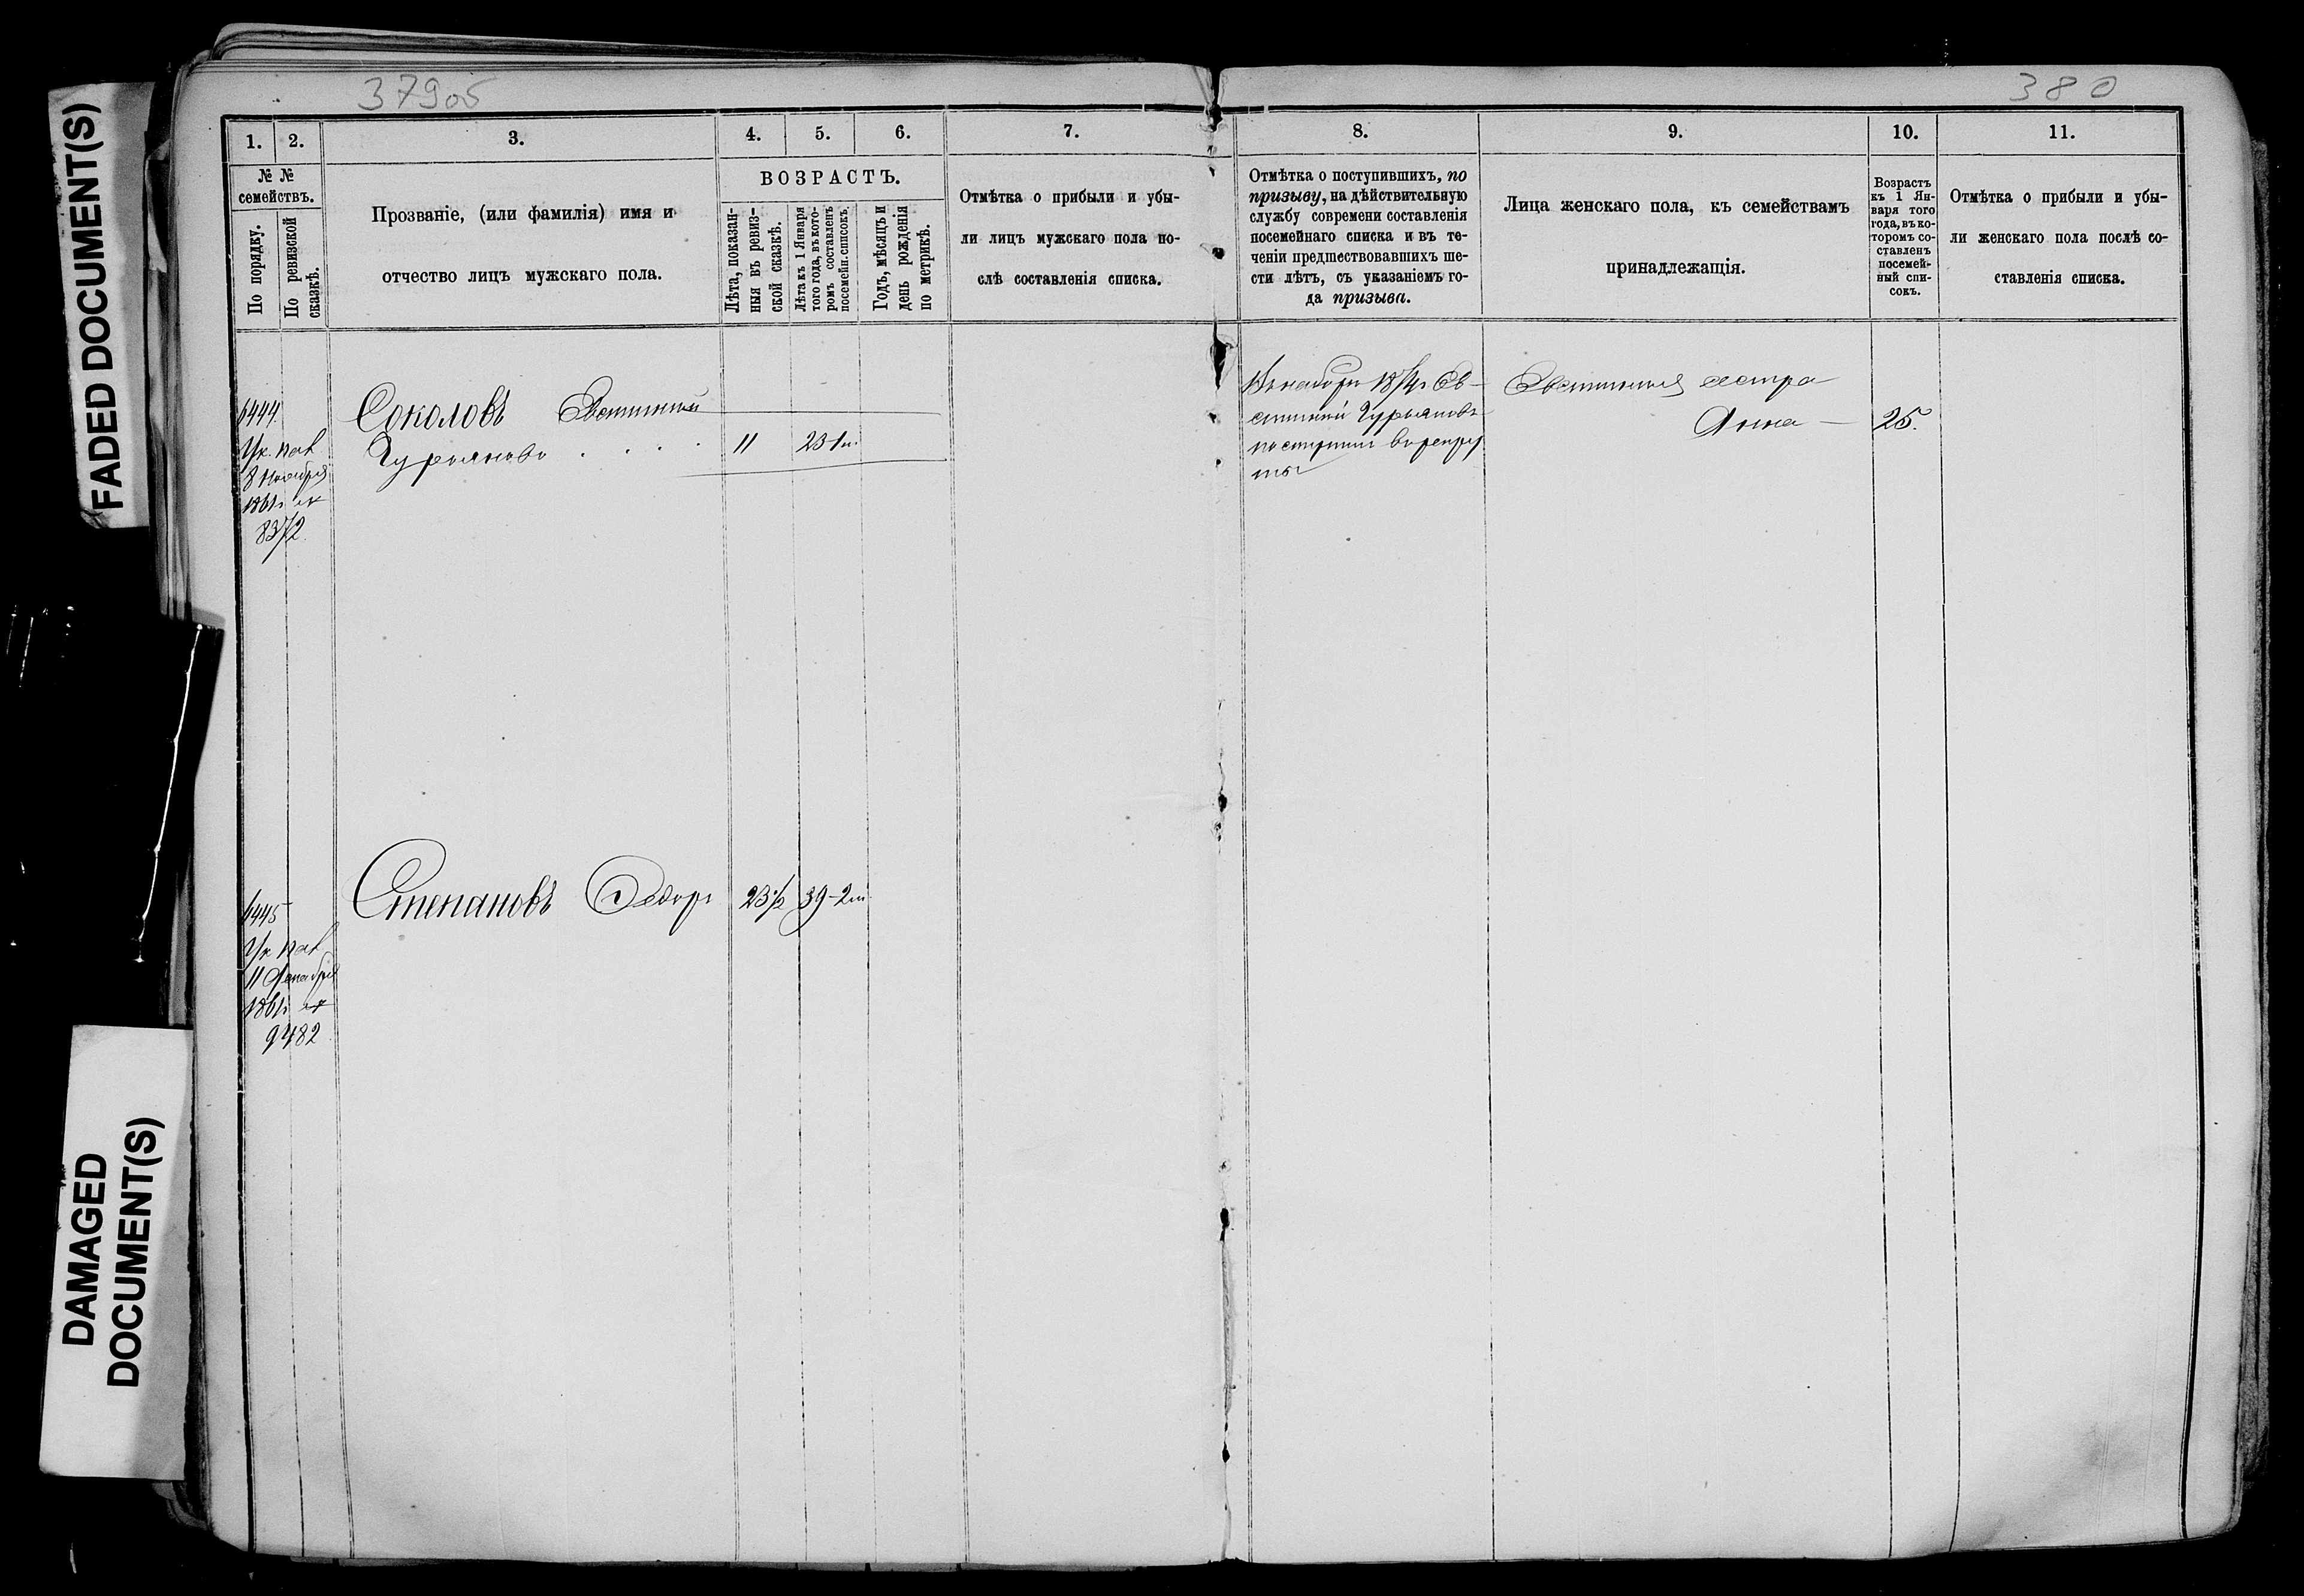 FADED DOCUMENT(S)
DAMAGED
DOCUMENT(S)
379об
380
1.
2.
3.
4.
5.
6.
7.
8.
9.
10.
11.
№ №
семействъ.
По порядку.
По ревизской
сказкѣ.
Прозваніе, (или фамилія) имя и
отчество лицъ мужскаго пола.
ВОЗРАСТЪ.
Лѣта, показан-
ныя въ ревиз-
ской сказкѣ.
Лѣта къ 1 Января
того года, въ кото-
ромъ составленъ
посемейн. списокъ.
Годъ, мѣсяцъ и
день рожденія
по метрикѣ.
Отмѣтка о прибыли и убы-
ли лицъ мужскаго пола по-
слѣ составленія списка.
Отмѣтка о поступившихъ, по
призыву, на дѣйствительную
службу современи составленія
посемейнаго списка и въ те-
ченіи предшествовавшихъ ше-
сти лѣтъ, съ указаніемъ го-
да призыва.
Лица женскаго пола, къ семействамъ
принадлежащія.
Возрастъ
къ 1 Ян-
варя того
года, въ ко-
торомъ со-
ставленъ
посемей-
ный спи-
сокъ.
Отмѣтка о прибыли и убы-
ли женскаго пола послѣ со-
ставленія списка.
6444.
Ук. Пал
8 Ноября
1861г №
8372.
Соколовъ Евстигней
Гурьяновъ . . .
11
23
Въ наборъ 1874г Ев-
стигней Гурьяновъ
поступилъ въ рекру
ты
Евстигнея сестра
Анна —
25.
6445
Ук. Пал
11 Декабря
1861г №
9482
Степановъ Федоръ
23½
39-2м